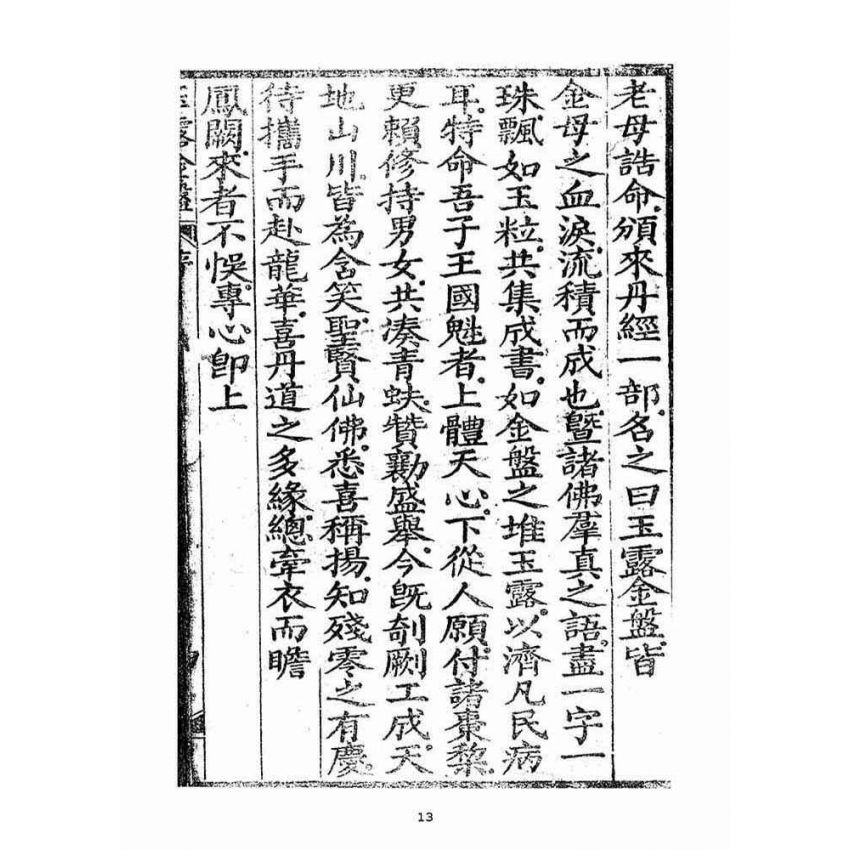 老母誥命．頒來丹經一部．名之曰玉露金盤．皆
金母之血淚．流積而成也．曁諸佛羣真之語．盡一字一
珠．飄如玉粒．共集成書．如金盤之堆玉露．以濟凡民病
耳．特命吾子王國魁者．上體天心．下從人願．付諸棗黎．
更賴修持男女．共湊青蚨．贊勷盛舉．今旣剞劂工成．天
地山川．皆為含笑．聖賢仙佛．悉喜稱揚．知殘零之有慶．
待攜手而赴龍華．喜丹道之多緣．總牽衣而瞻
鳳闕．來者不悞．專心卽上
玉露金盤 序
13